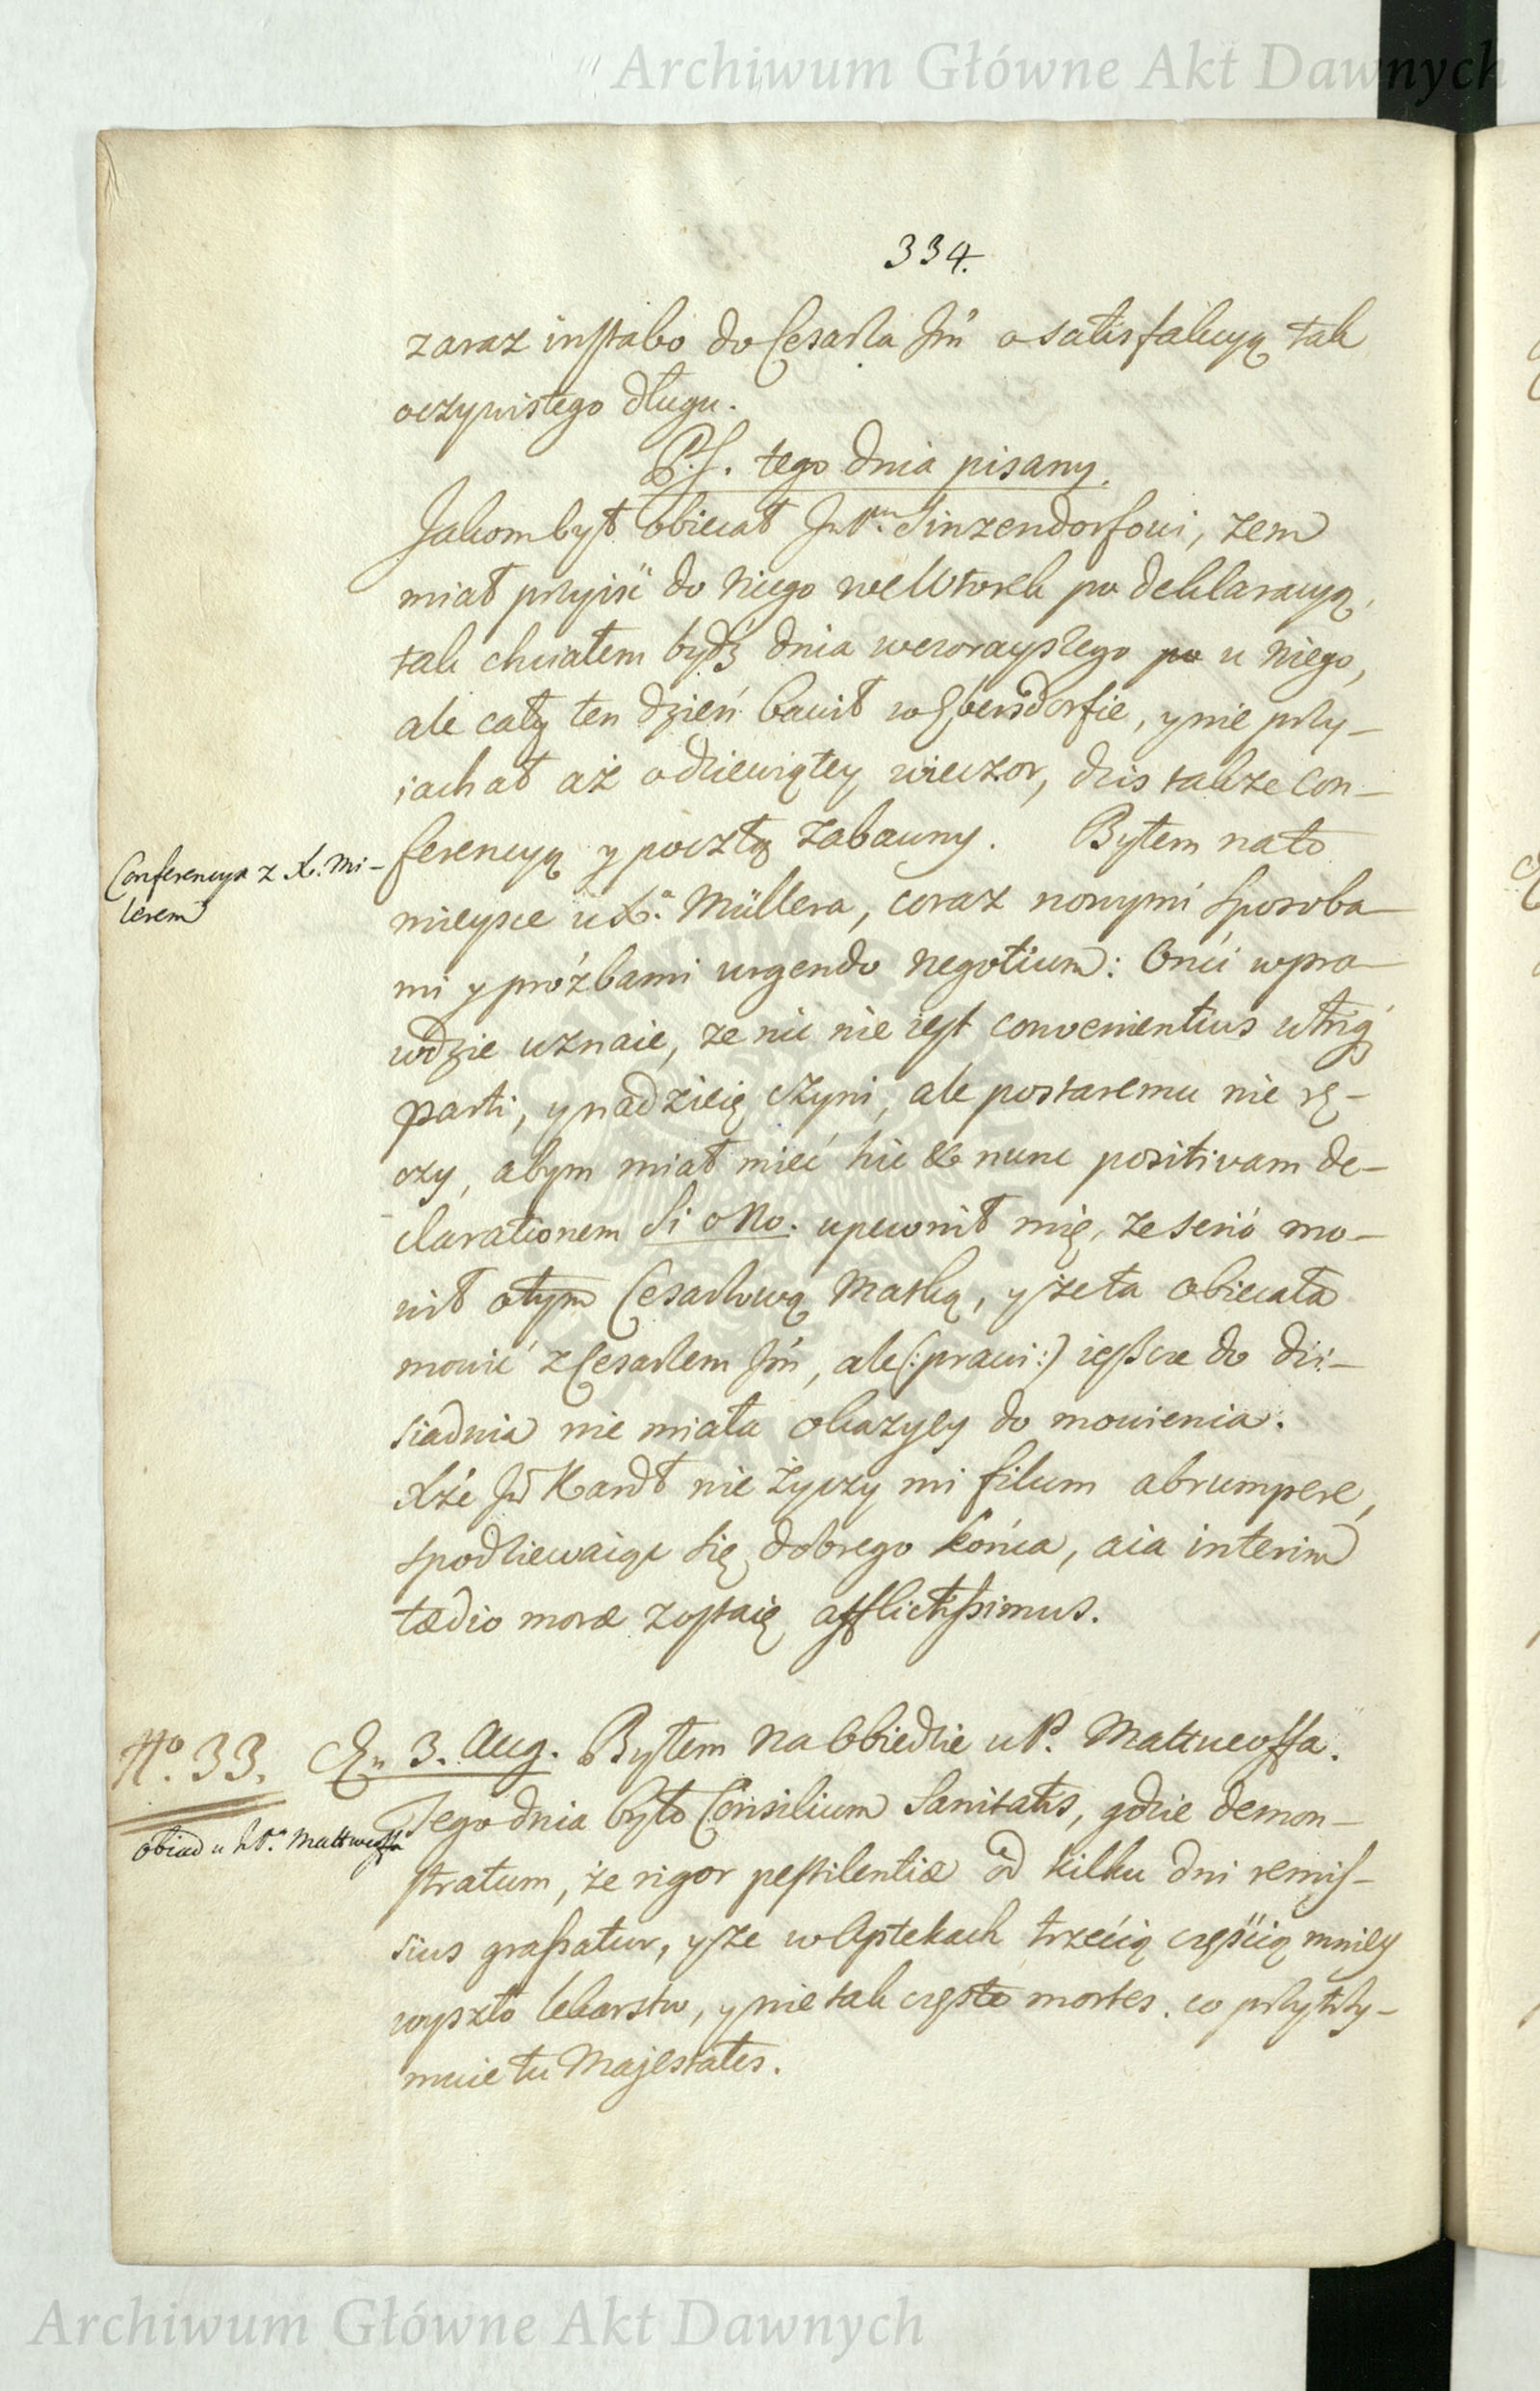 Archiwum Główne Akt Dawnych
334.
zaraz instabo do Cesarza Jm̃ o satisfakcyą tak
oczywistego długu.
P.S. tego dnia pisany.
Jakom był obiecał Sinzendorfowi, zem
miał przyiść do niego we Wtorek po deklaracyą,
tak chciałem bydź dnia wczorayszego po u niego,
ale cały ten dzień bawił w Ebersdorfie, y nie przy-
iachał aż o dziewiątey wieczor, dzis takze con-
ferencyą y pocztą zabawny. Byłem na to
Conferencya z X. Mi-
lerem
mieysce u X.ª Müllera, coraz nowymi sposoba-
mi y próźbami urgendo negotium: Onći wpra-
wdzie uznaie, ze nic nie iest convenientius utriq;
parti, y nadzieię czyni, ale postaremu nie rę-
czy, abym miał mieć hic & nunc positivam de-
clarationem Si o No. upewnił mię, ze serió mo-
wił o tym Cesarzową Matką, y że ta obiecała
mowić z Cesarzem Jm̃, ale (:prawi:) ieszcze do dzi-
siadnia nie miała okazyey do mowienia.
Xże Jm̃ Kardł nie życzy mi filum abrumpere,
spodziewaiąc się dobrego końca, a ia interim
tædio moræ zostaię afflictissimus.
Nº. 33.
3. Aug. Byłem na Obiedzie u P. Mattueoffa.
Tego dnia było Consilium Sanitatis, gdzie demon-
obiad u Mattweoffa
stratum, że rigor pestilentiæ od kilku dni remis-
sius grassatur, y że w Aptekach trzećią częśćią mniey
wyszło lekarstw, y nie tak częste mortes. co przytrzy-
muie tu Majestates.
Archiwum Główne Akt Dawnych